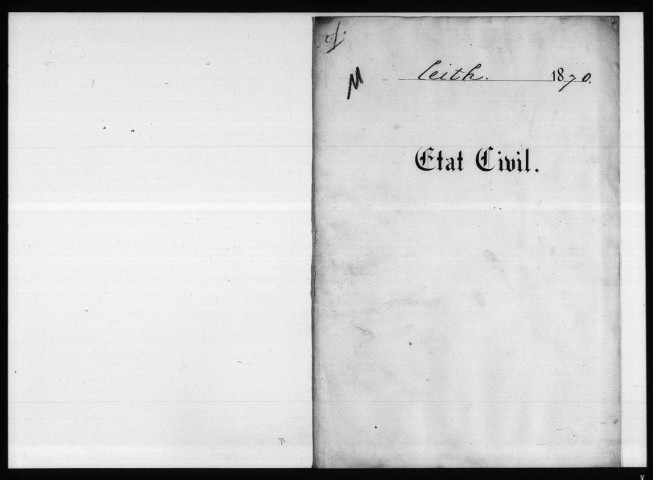 M
Leith. 1870.
Etat Civil.